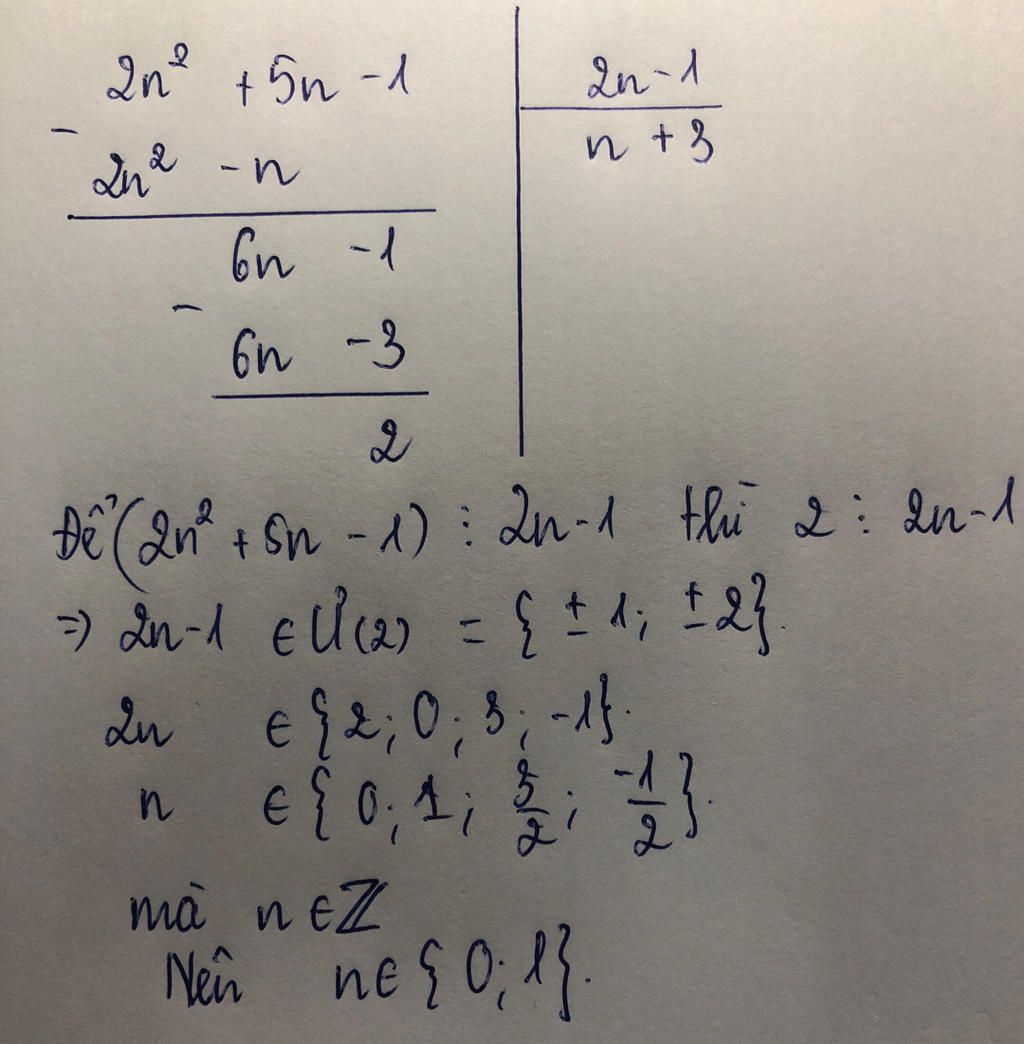 2n² + 5n - 1 | 2n - 1
- 2n² - n | n + 3
6n - 1
- 6n - 3
2
Để (2n² + 5n - 1) ⋮ 2n - 1 thì 2 ⋮ 2n - 1
=> 2n - 1 ∈ Ư(2) = {± 1; ± 2}.
2n ∈ {2; 0; 3; -1}.
n ∈ {0; 1; 3/2; -1/2}.
mà n ∈ ℤ
Nên n ∈ {0; 1}.